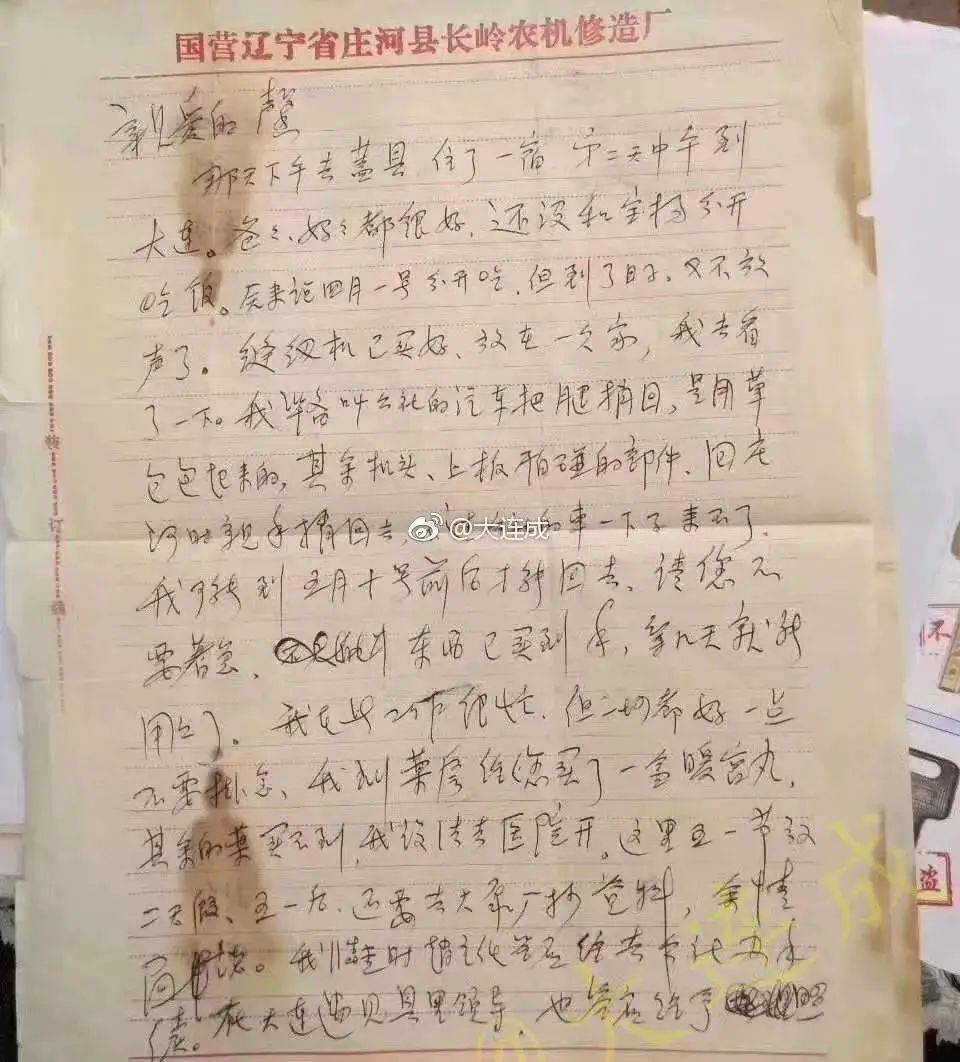 国营辽宁省庄河县长岭农机修造厂
亲爱的
那天下午去盖县住了一宿 第二天中午到
大连。爸爸、妈妈都很好，还没和宝杨分开
吃饭。后来说四月一号分开吃，但到了日子，又不放
声了。缝纫机已买好、放在一久家，我去看
了一下。我准备叫公社的汽车把腿捎回，是用草
包包起来的，其余机头、上板怕碰的部件，回庄
河时亲手捎回去，的事一下子来不了
我可能到五月十号前后才能回去、请您不
要着急， 东西已买到手，拿几天就能
用上了。我在此工作很忙，但一切都好一点
不要挂念、我到药房给您买了一盒暖宫丸，
其余的药买不到，我设法去医院开。这里五一节放
二天假、五一后，还要去大 厂抄资料，余情
回 。我临走时
在大连遇见县里领导，也答应给
@大连成
特
订
不
盗
大连成